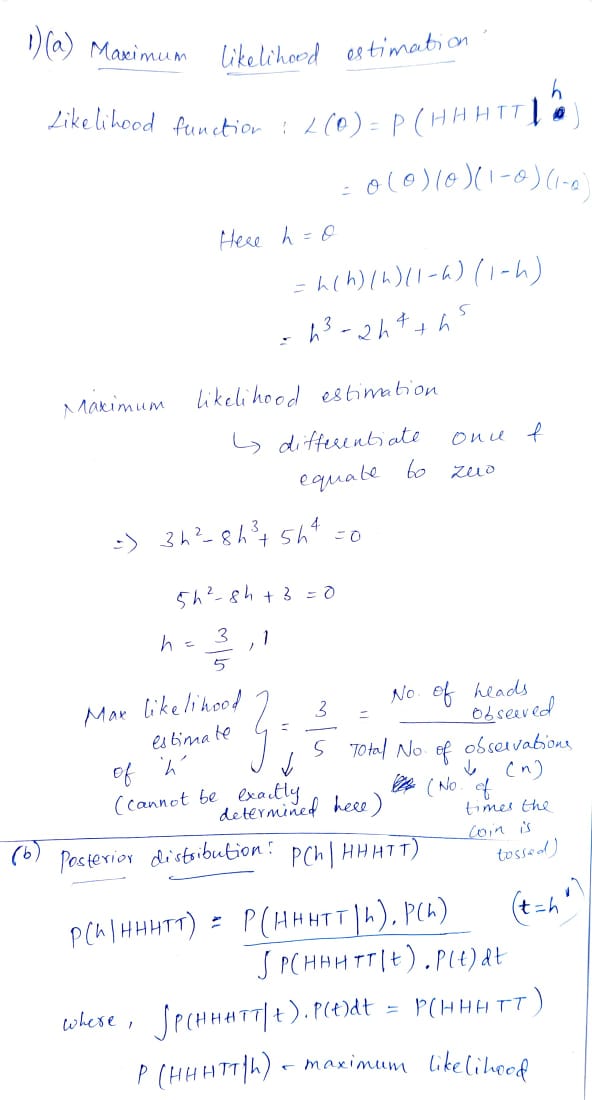 1)(a) Maximum likelihood estimation
Likelihood function : L(θ) = P(HHHTT | h)
= θ(θ)(θ)(1-θ)(1-θ)
Here h = θ
= h(h)(h)(1-h)(1-h)
= h³ - 2h⁴ + h⁵
Maximum likelihood estimation
↳ differentiate once &
equate to zero
=> 3h² - 8h³ + 5h⁴ = 0
5h² - 8h + 3 = 0
h = 3/5 , 1
Max likelihood estimate of 'h' } = 3/5 = No. of heads observed / Total No. of observations (n)
↓ (cannot be exactly determined here)
↓ (No. of times the coin is tossed)
(b) Posterior distribution: P(h|HHHTT)
P(h|HHHTT) = P(HHHTT|h). P(h) / ∫P(HHHTT|t).P(t)dt (t=h')
where, ∫P(HHHTT|t).P(t)dt = P(HHHTT)
P(HHHTT|h) - maximum likelihood